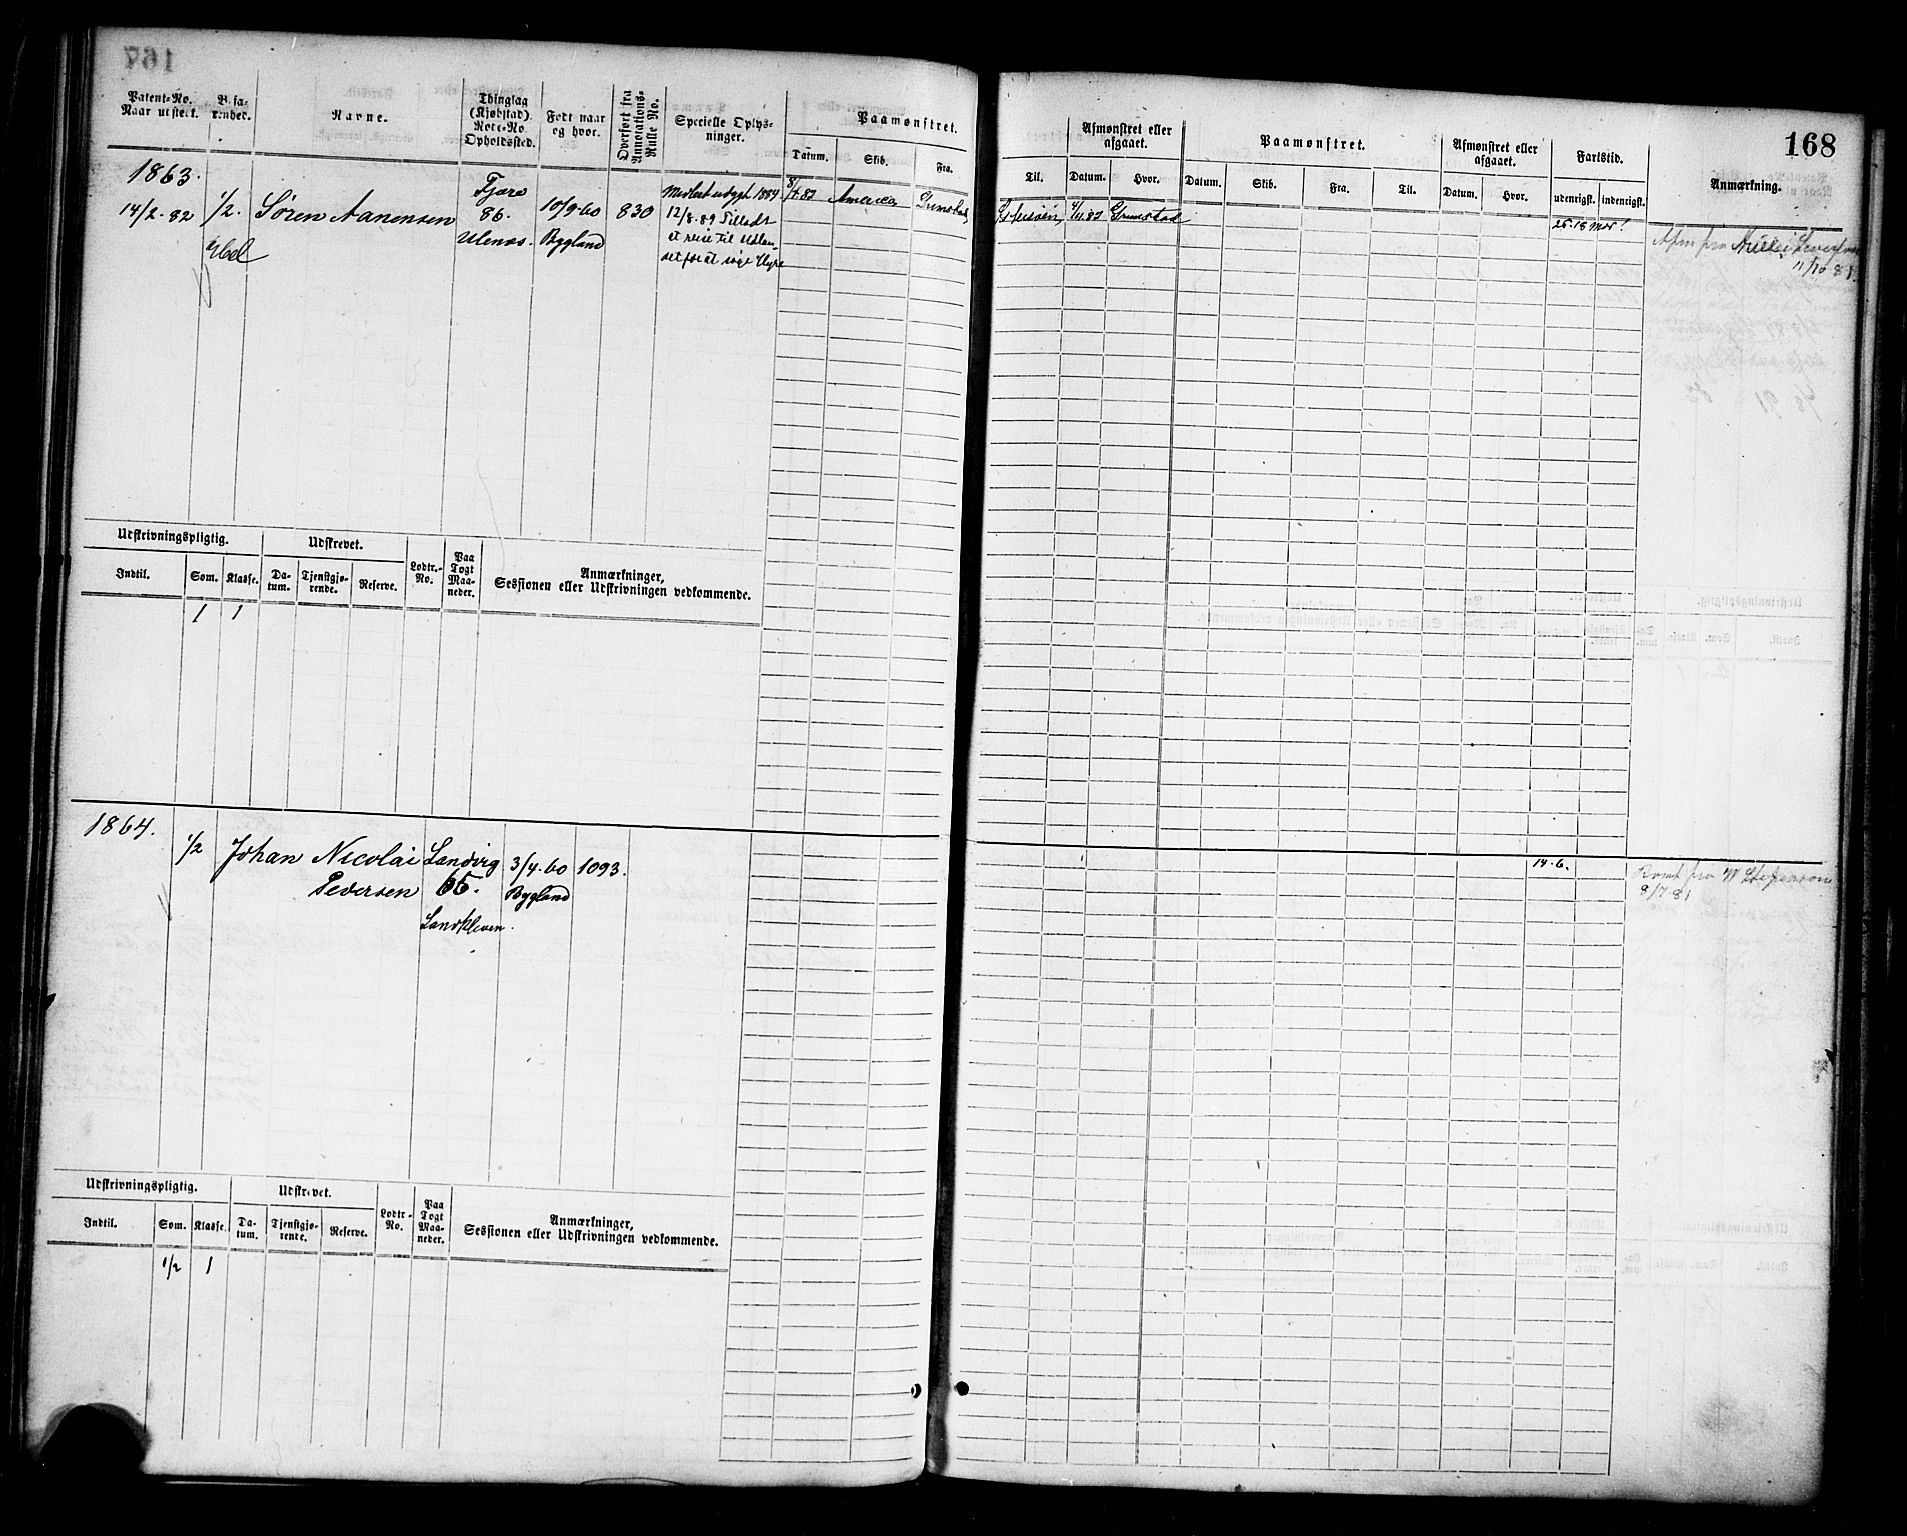 167
168
Patent-No. Naar utstedt.
Befarenhed.
Navne.
Thinglag (Kjøbstad). Rode-No. Opholdssted.
Født naar og hvor.
Overført fra Annotations-Rulle No.
Specielle Oplysninger.
Paamønstret.
Datum. Skib. Fra.
Til.
Afmønstret eller afgaaet.
Datum. Hvor.
Paamønstret.
Datum. Skib. Fra. Til.
Afmønstret eller afgaaet.
Datum. Hvor.
Fartstid.
udenrigst. indenrigst.
Anmærkning.
1863.
14/2-82
1/2.
Søren Aanensen
Fjære
86.
Ulenæs.
10/9-60
Bygland
830
12/8-89 Tilladt
at reise til Udlan
det for at søge Hyre
America
Grimstad
4/11.87 Grimstad
25-18 Mdr!
11/10 81.
Udskrivningspligtig.
Udskrevet.
Lodtr.-No.
Paa Togt Maaneder.
Anmærkninger,
Sessionen eller Udskrivningen vedkommende.
Indtil. Som. Klasse. Datum. Tjenstgjørende. Reserve.
1 1
1864.
1/2
Johan Nicolai
Pedersen
Landvig
65.
Landkleven.
3/4-60
Bygland
1093.
14-6.
8/7 81
Udskrivningspligtig.
Udskrevet.
Lodtr.-No.
Paa Togt Maaneder.
Anmærkninger,
Sessionen eller Udskrivningen vedkommende.
Indtil. Som. Klasse. Datum. Tjenstgjørende. Reserve.
1/2 1